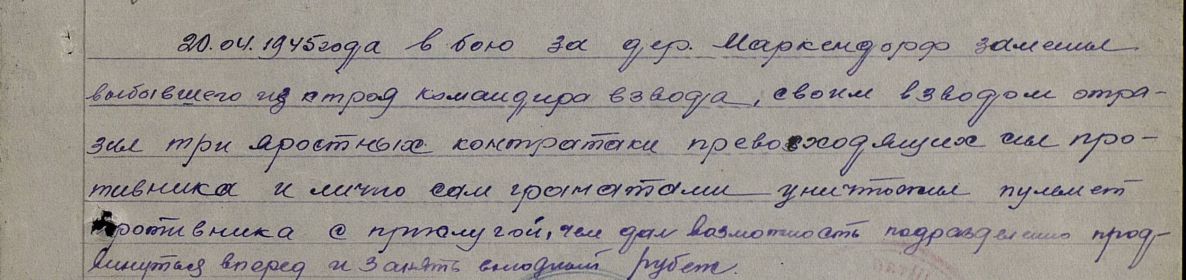 20.04.1945года в бою за дер. Маркендорф заменил
выбывшего из строя командира взвода, своим взводом отра-
зил три яростных контратаки превосходящих сил про-
тивника и лично сам гранатами уничтожил пулемет
противника с прислугой, чем дал возможность подразделению прод-
винуться вперед и занять выгодный рубеж.